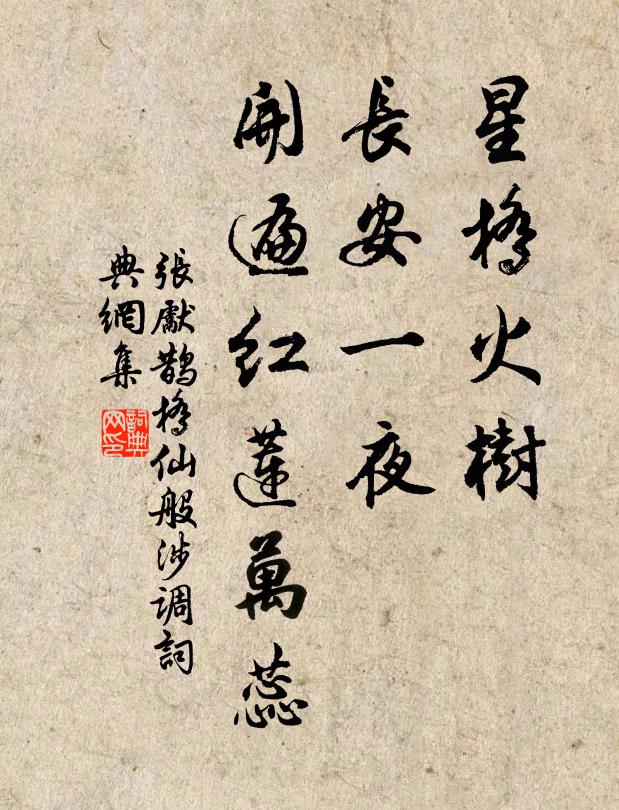 星橋火樹
長安一夜
開遍紅蓮萬蕊
張獻鵲橋仙般涉调詞
典網集
詞典网印